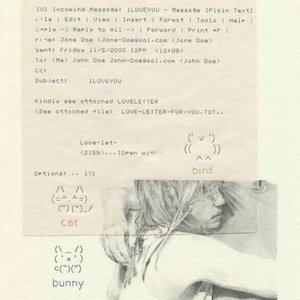 [U] Incoming Message: ILOVEYOU - Message [Plain Text]
File | Edit | View | Insert | Format | Tools | Help |
Reply -> Reply to All -> | Forward | Print
From: Jane Doe (Jane-Doe@aol.com (Jane Doe)
Sent: Friday 11/5/2000 12PM (12:08)
To: (Me) John Doe John-Doe@aol.com (John Doe)
Cc:
Subject: ILOVEYOU
Kindly see attached LOVELETTER
(See attached file: LOVE-LETTER-FOR-YOU.TXT..
Love-let-
(215b)...[Open with
(' v ')
(( ))
^ ^
bird
Options: .. [?]
/\ /\
(=^.^=)
(")(")_/
cat
(\_/)
('x')
c(")(")
bunny